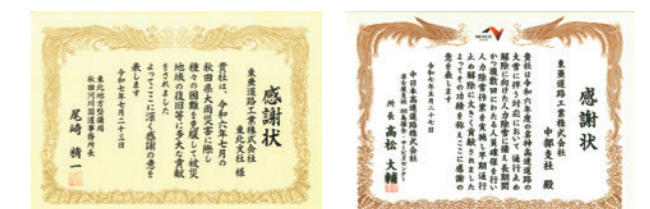 感謝状
東亜道路工業株式会社
東北支社 様
貴社は、令和六年七月の
秋田県大雨災害に際し
種々の困難を克服して被災
地域の復旧等に多大な貢献
をされました
よってここに深く感謝の意を
表します
令和七年七月二十三日
東北地方整備局
秋田河川国道事務所長
尾﨑 精一
感謝状
東亜道路工業株式会社
中部支社 殿
貴社は令和六年度の名神高速道路の
大雪に伴う対応において通行止め
解除に向けた人力除雪に備え長期間
かつ複数回にわたる人員確保を行い
人力除雪作業を実施し早期通行
止め解除に大きく貢献されました
よってその功績を称えここに感謝の
意を表します
令和七年五月二十七日
中日本高速道路株式会社
所長 高松 大輔